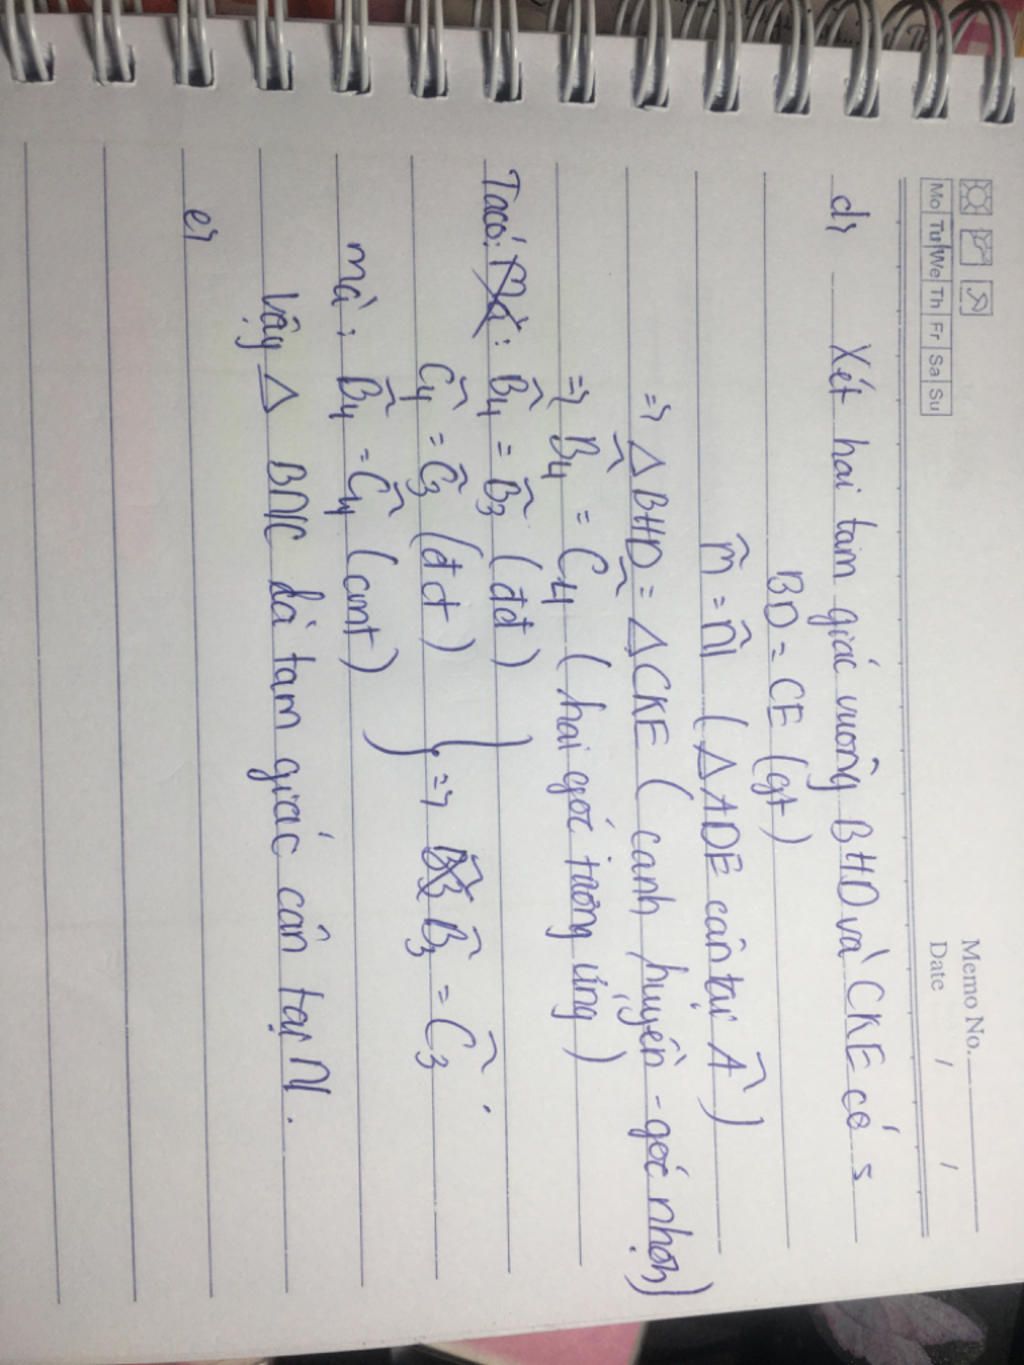 Memo No.
Mo Tu We Th Fr Sa Su
Date / /
d, Xét hai tam giác vuông BHD và CKE có :
BD = CE (gt)
M̂ = N̂1 ( △ADE cân tại Â )
=> △BHD = △CKE ( cạnh huyền - góc nhọn)
=> B̂4 = Ĉ4 ( hai góc tương ứng )
Ta có: Mà : B̂4 = B̂3 (đđ)
Ĉ4 = Ĉ3 (đđ) } => B̂3 B̂3 = Ĉ3
mà : B̂4 = Ĉ4 (cmt)
Vậy △ BNC là tam giác cân tại N.
e,